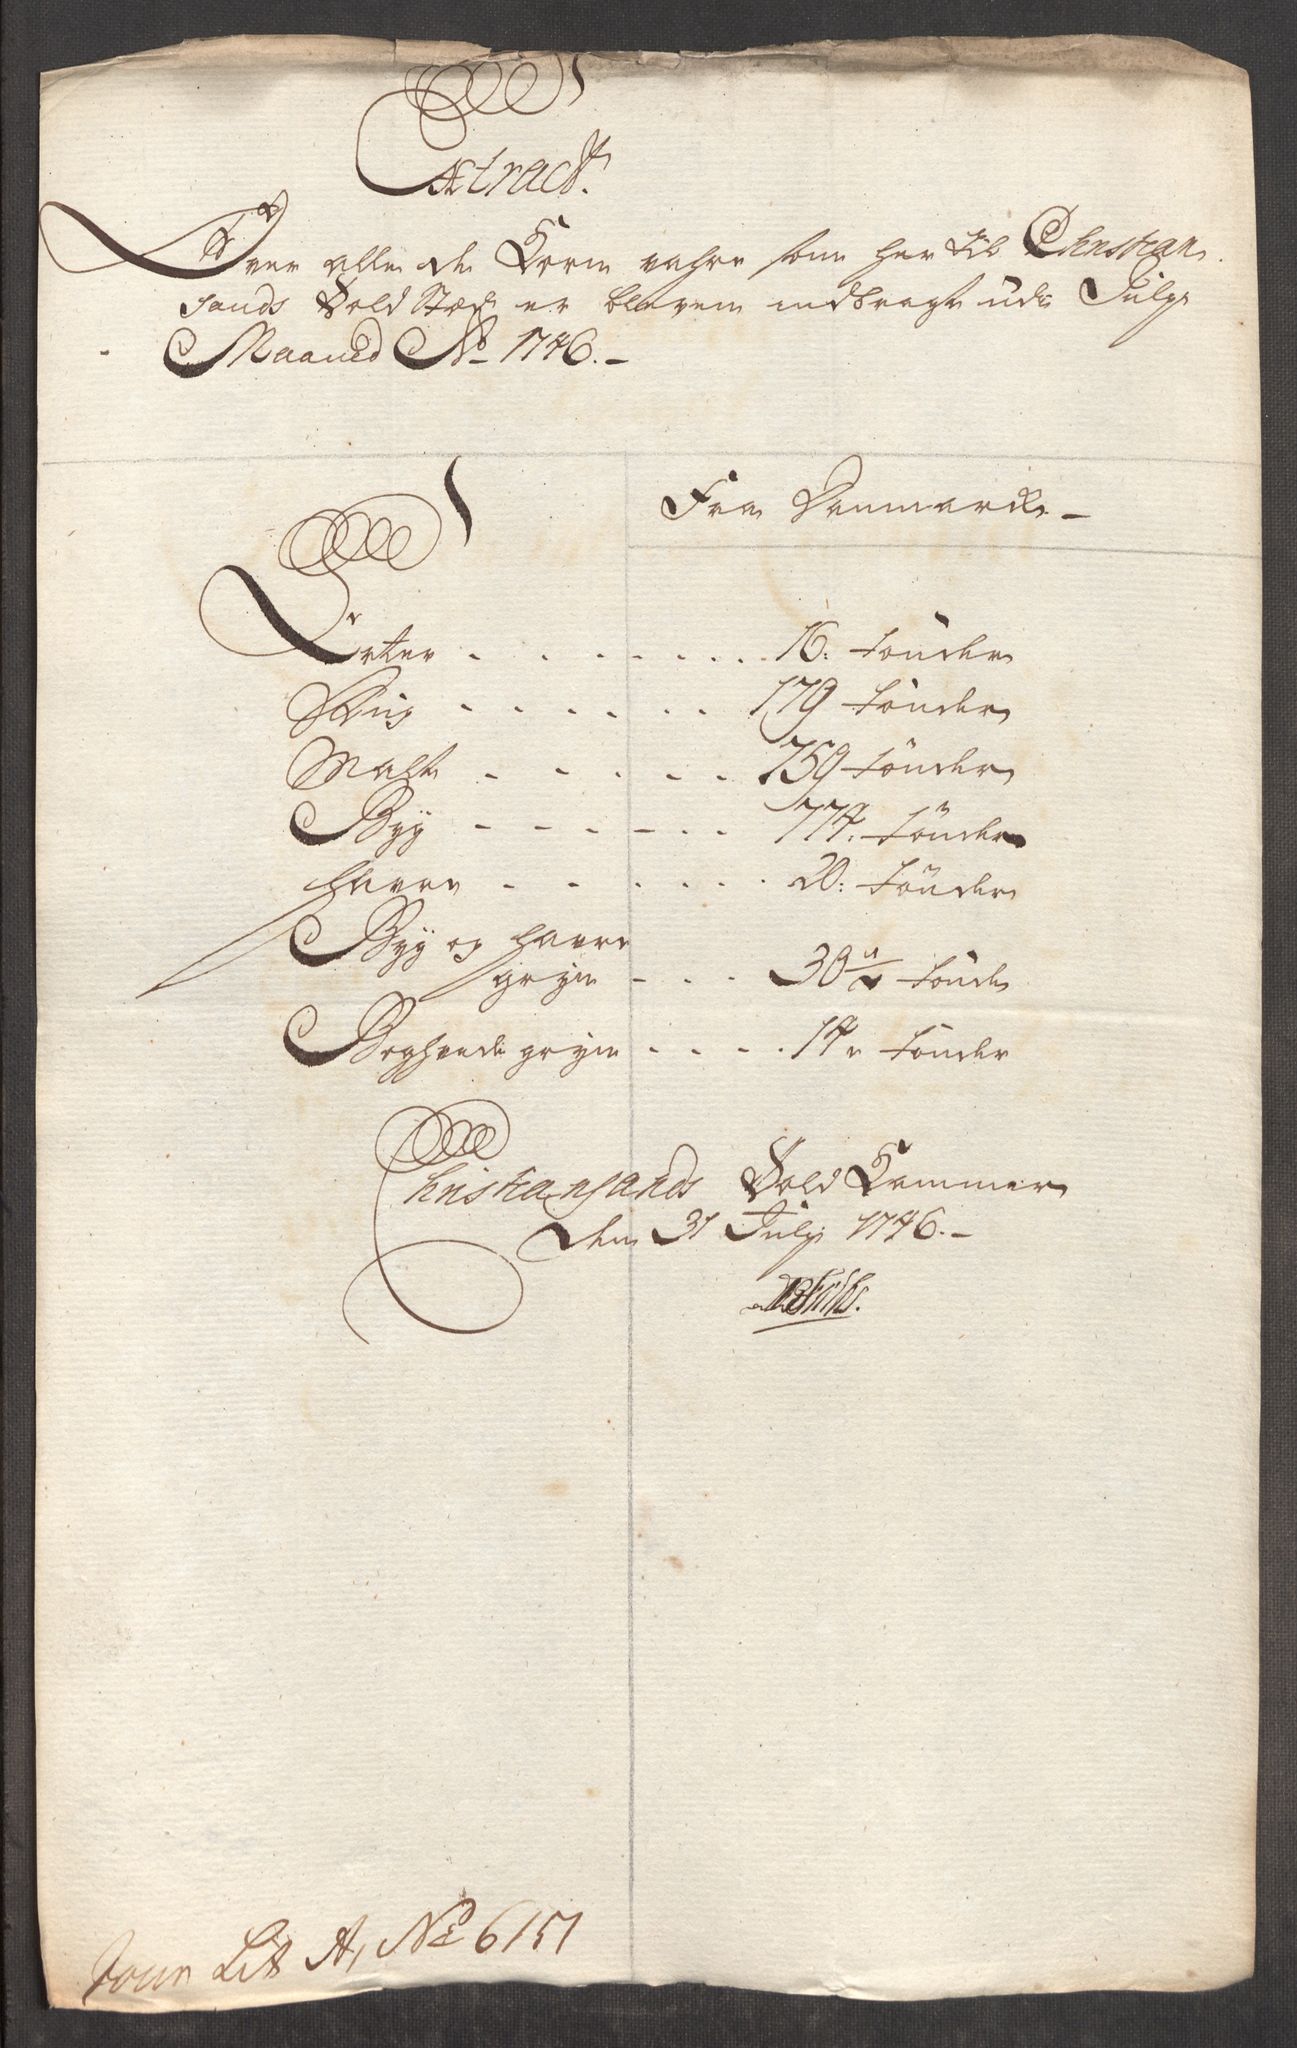 Extract
Over alle de Korn vahre som her til Christian
sands Told Stæd er bleven indbragt udi Julij
Maaned Ao 1746.
Fra Danmarck
Erter . . . . . . . 16: tönder
Rug . . . . . . 179 tönder
Malt . . . . . 759 tönder
Byg . . . . . . 774. tönder
Havre . . . . . . 20: tönder
Byg og Havre
gryn . . . 30 1/2 tönde
Boghvede gryn . . . . 14 tönder
Christiansands Told Kammer
den 31 Julij 1746.
Jour Lit A, No 6151